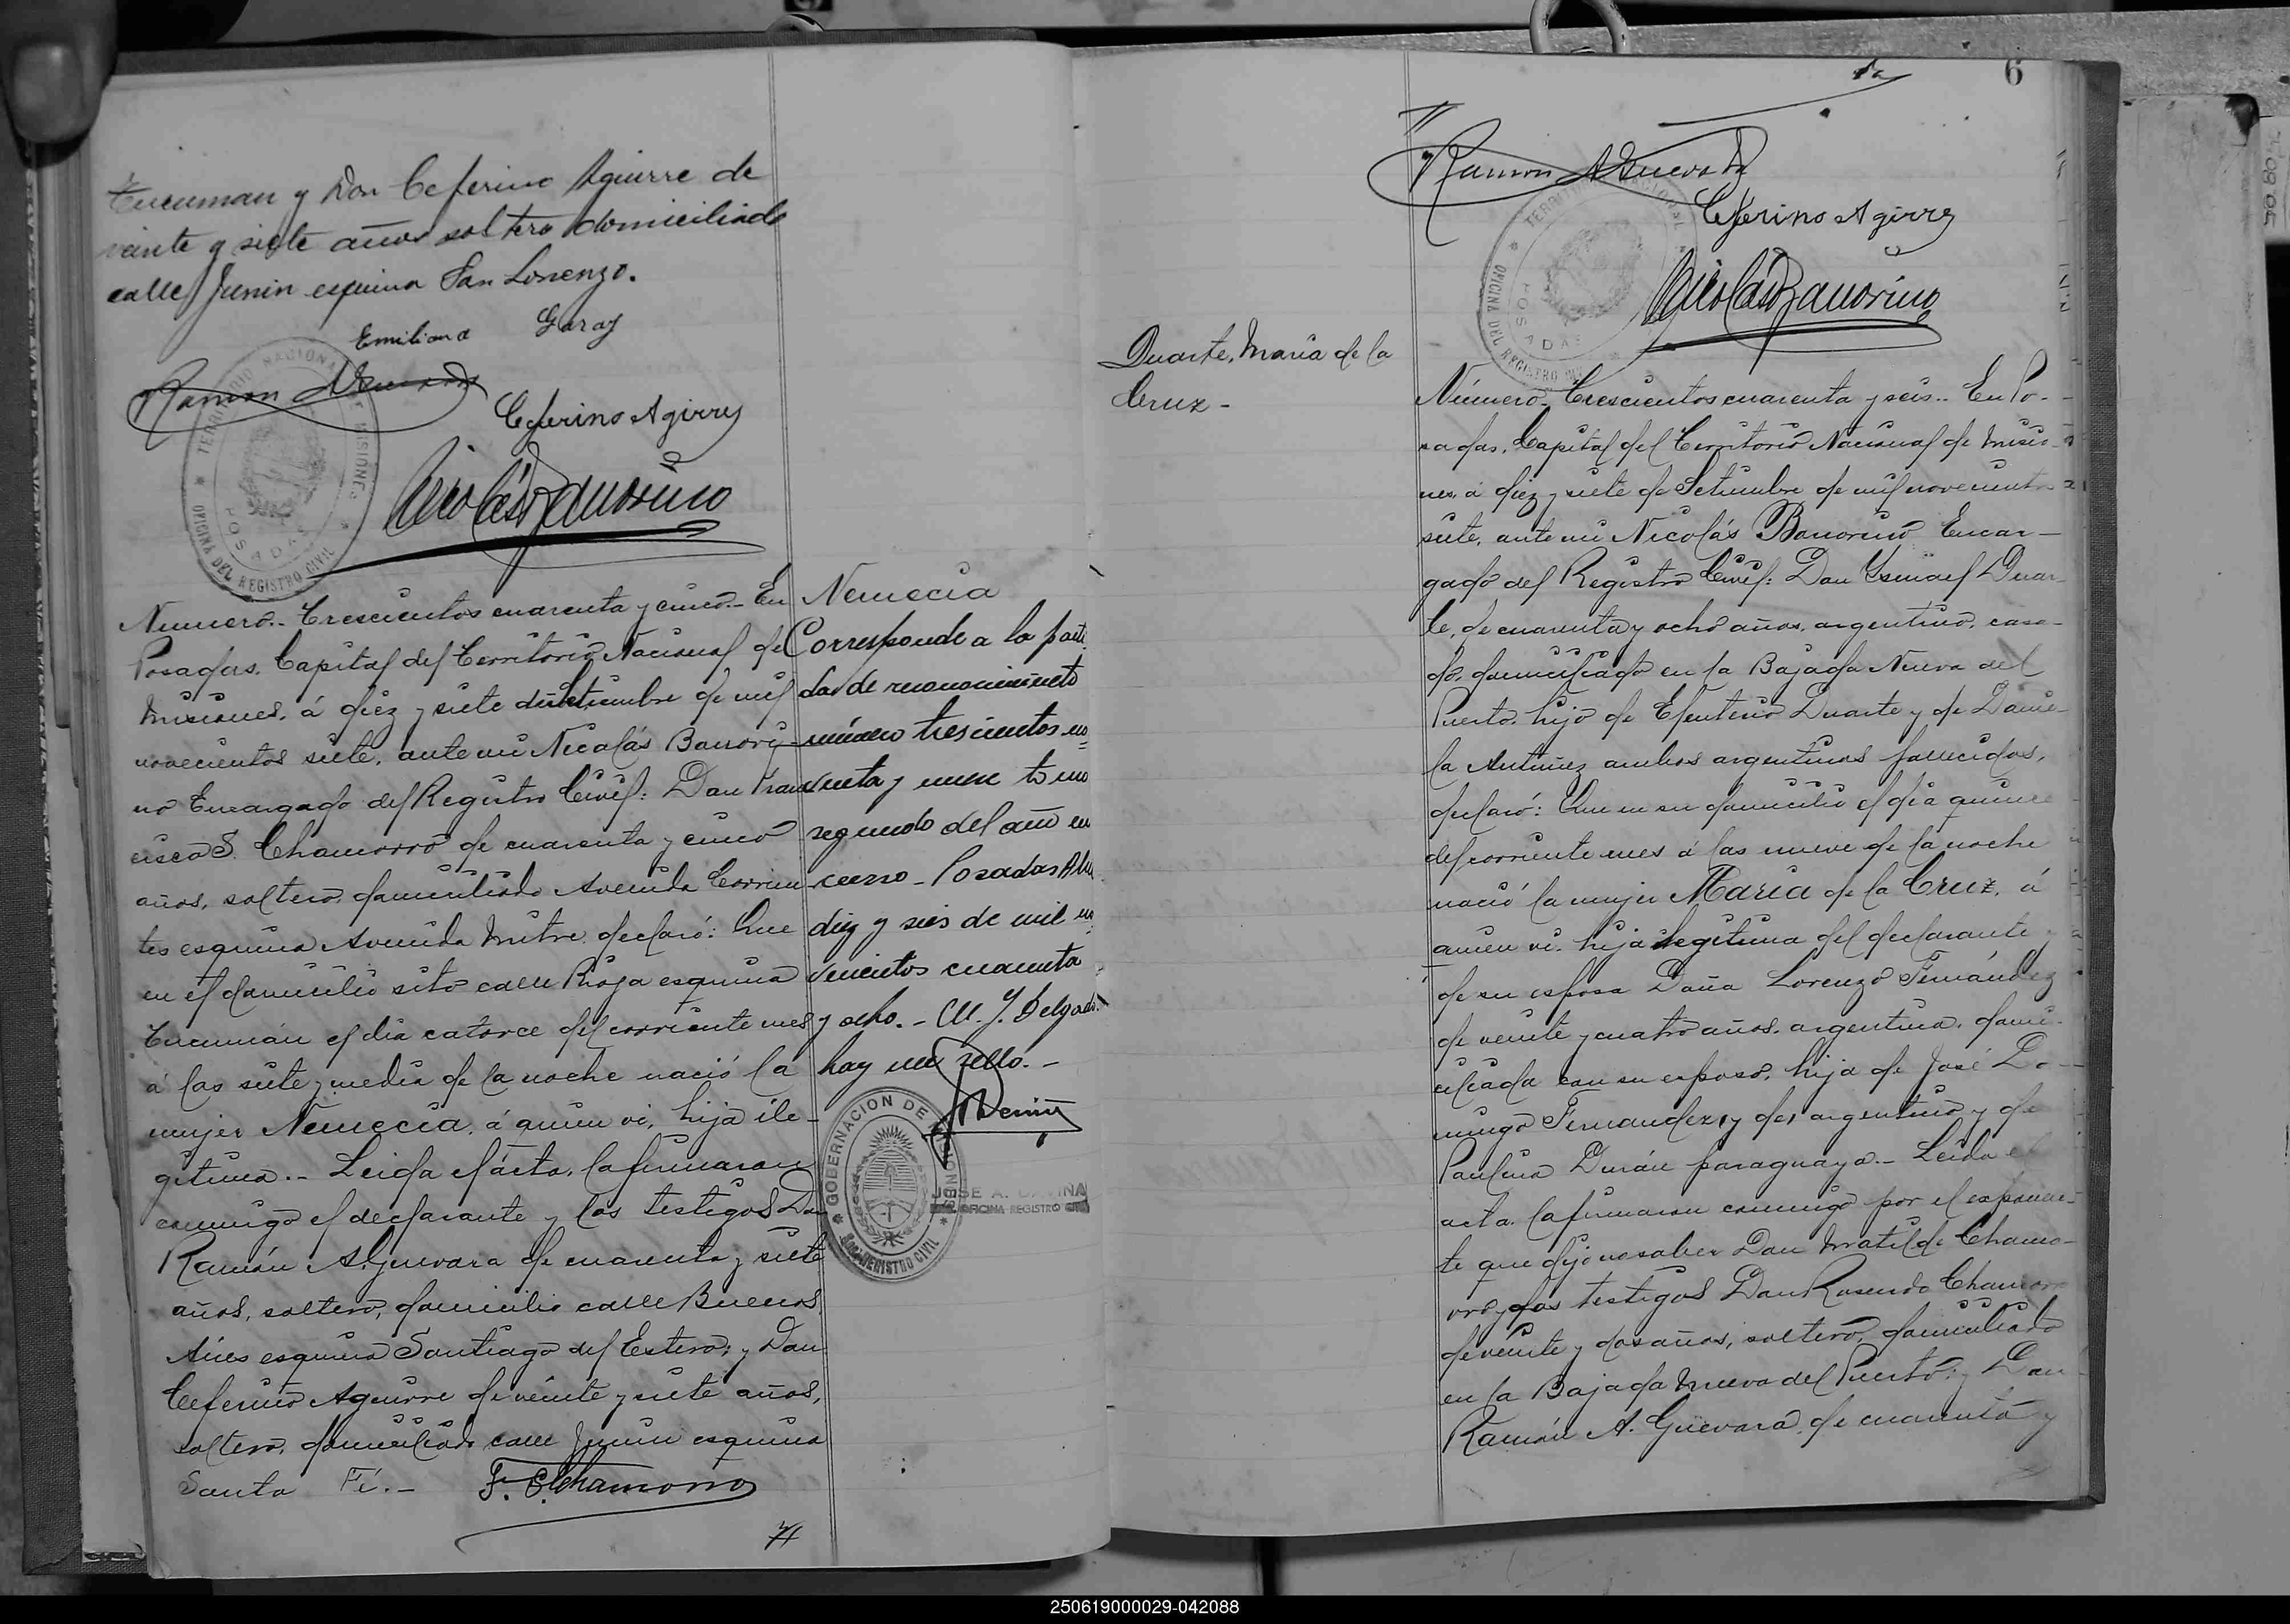 Tucuman y Don Ceferino Aguirre de
veinte y siete años soltero domiciliado
calle Junin esquina San Lorenzo.
Emiliana Garay
Ramon A Guevara
Ceferino Agirry
Nicolás Banorino
TERRITORIO NACIONAL DE MISIONES
OFICINA DEL REGISTRO CIVIL
POSADAS
Número.- Trescientos cuarenta y cinco.- En
Posadas, Capital del Territorio Nacional de
Misiones, á diez y siete de Setiembre de mil
novecientos siete, ante mi Nicolás Banori-
no Encargado del Registro Civil: Don Fran
cisco S. Chamorro de cuarenta y cinco
años, soltero, domiciliado Avenida Corrien
tes esquina Avenida Mitre, declaró: Que
en el domicilio sito calle Rioja esquina
Tucumán el dia catorce del corriente mes
á las siete y media de la noche nació la
mujer Nemecia, á quien vi, hija ile-
gitima.- Leida el acta, la firmaron
conmigo el declarante y los testigos Don
Ramón A. Guevara de cuarenta y siete
años, soltero, domicilio calle Buenos
Aires esquina Santiago del Estero; y Don
Ceferino Aguirre de veinte y siete años,
soltero, domiciliado calle Junin esquina
Santa Fé.- F. S. Chamorro
Nemecia
Corresponde a la parti
da de reconocimiento
número trescientos no
venta y nueve tomo
segundo del año en
curso - Posadas Abr
diez y seis de mil no
vecientos cuarenta
y ocho. - M. J. Delgado.
hay un sello. -
GOBERNACION DE MISIONES
REGISTRO CIVIL
JOSE A.
OFICINA REGISTRO CIVIL
6
Ramon A Guevara
Ceferino Agirry
Nicolás Banorino
TERRITORIO NACIONAL
OFICINA DEL REGISTRO
POSADAS
Duarte, María de la
Cruz -
Número.- Trescientos cuarenta y seis.- En Po-
sadas, Capital del Territorio Nacional de Misio-
nes, á diez y siete de Setiembre de mil novecientos
siete, ante mi Nicolás Banorino Encar-
gado del Registro Civil: Don Ysmael Duar-
te, de cuarenta y ocho años, argentino, casa-
do, domiciliado en la Bajada Nueva del
Puerto, hijo de Eleuterio Duarte y de Danie-
la Antunez ambos argentinos fallecidos,
declaró: Que en su domicilio el dia quince
del corriente mes á las nueve de la noche
nació la mujer María de la Cruz, á
quien vi, hija legitima del declarante y
de su esposa Doña Lorenza Fernández
de veinte y cuatro años, argentina, domi-
ciliada con su esposo, hija de José Do-
mingo Fernandez, y de, argentino y de
Paulina Durán paraguaya.- Leida el
acta, la firmaron conmigo por el exponen-
te que dijo no saber Don Matilde Chamo-
rro y los testigos Don Rosendo Chamorro
de veinte y dos años, soltero, domiciliado
en la Bajada Nueva del Puerto; y Don
Ramón A. Guevara, de cuarenta y
250619000029-042088